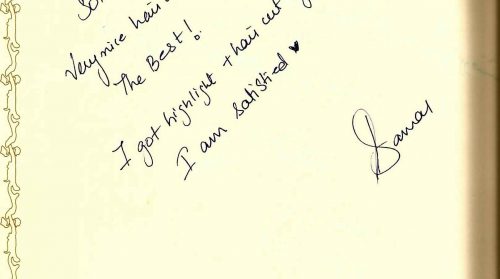 Very nice hair
The Best!
I got highlight + hair cut
I am satisfied ♥
Samar